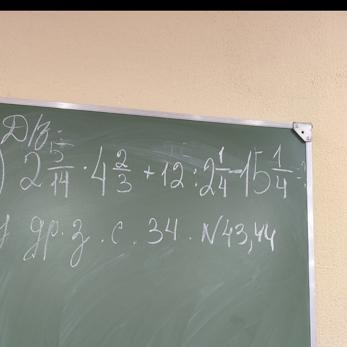 Д/з:
) 2 5/14 · 4 2/3 + 12 : 2 1/4 - 15 1/4 =
др. з. с. 34. N43,44